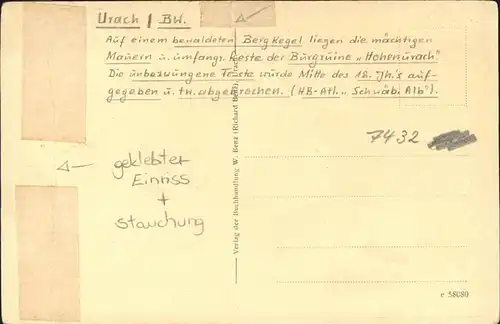 Urach / BW.
Auf einem bewaldeten Bergkegel liegen die mächtigen
Mauern u. umfangr. Reste der Burgruine „Hohenurach".
Die unbezwungene Feste wurde Mitte des 18. Jh.'s auf-
gegeben u. tw. abgebrochen. (HB-Atl. „Schwäb. Alb").
7432
geklebter
Einriss
+
Stauchung
Verlag der Buchhandlung W. Benz (Richard
c 58080